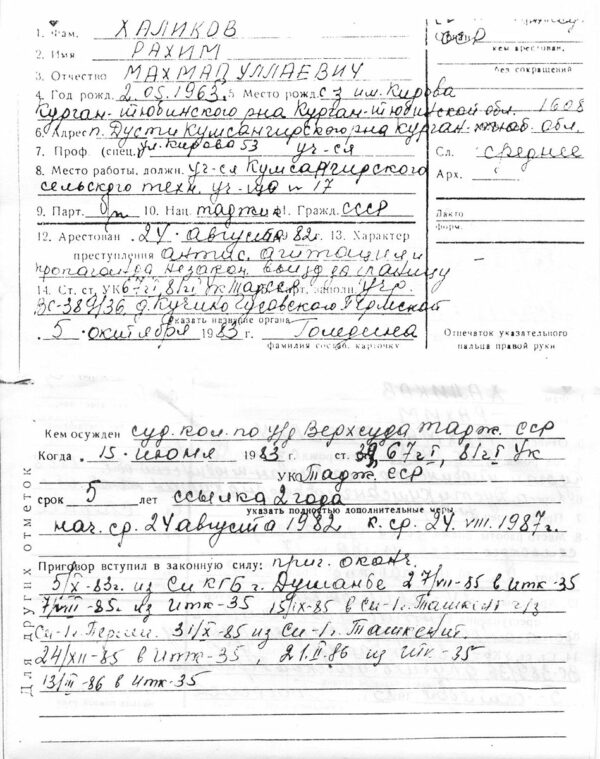 1. Фам. ХАЛИКОВ
2. Имя РАХИМ
3. Отчество МАХМАДУЛЛАЕВИЧ
кем арестован,
без сокращений
4. Год рожд. 2.05.1963. 5 Место рожд. с-з им. Кирова
Курган-тюбинского р-на Курган-тюбинской обл. 1608
6. Адрес п. Дусти Кумсангирского р-на Курган-тюб. обл.
7. Проф. (спец.) ул. Кирова 53 уч-ся
Сл. среднее
8. Место работы, должн. уч-ся Кумсангирского
сельского техн. уч-ща n 17
Арх.
9. Парт. б/п 10. Нац. таджик 11. Гражд. СССР
Дакто
форм.
12. Арестован 24 . августа 82 г. 13. Характер
преступления антис. агитация и
пропаганда, незакон. выезд за границу
14. Ст. ст. УК 67 ч I, 81 ч I УК Тадж ССР карт. заполн. учр.
ВС-389/36 д. Кучино Чусовского Пермской
указать название органа
. 5 . октября 1983 г.
фамилия состав. карточку
Отпечаток указательного
пальца правой руки
Для других отметок
Кем осужден суд. кол. по у/д Верхсуда тадж. ССР
Когда . 15 . июня 1983 г. ст. 67 ч I, 81 ч I УК
УК Тадж. ССР
срок 5 лет ссылка 2 года
указать полностью дополнительные меры
нач. ср. 24 августа 1982 к. ср. 24. VIII. 1987 г.
Приговор вступил в законную силу: приг. оконч.
5/X-83г. из Си КГБ г. Душанбе 27/VII-85 в итк-35
7/VIII-85г. из итк-35 15/IX-85 в Си-1 г. Ташкент ч/з
Си-1 г. Перми. 31/X-85 из Си-1 г. Ташкент.
24/XII-85 в итк-35, 21.II-86 из итк-35
13/III-86 в итк-35